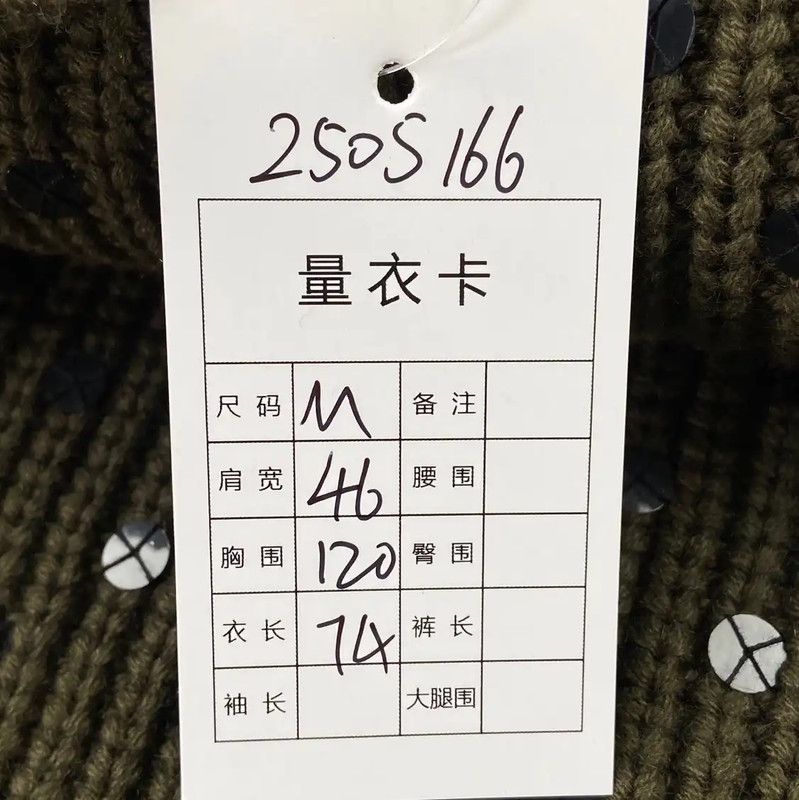 2505166
量衣卡
尺码 M 备注
肩宽 46 腰围
胸围 120 臀围
衣长 74 裤长
袖长 大腿围